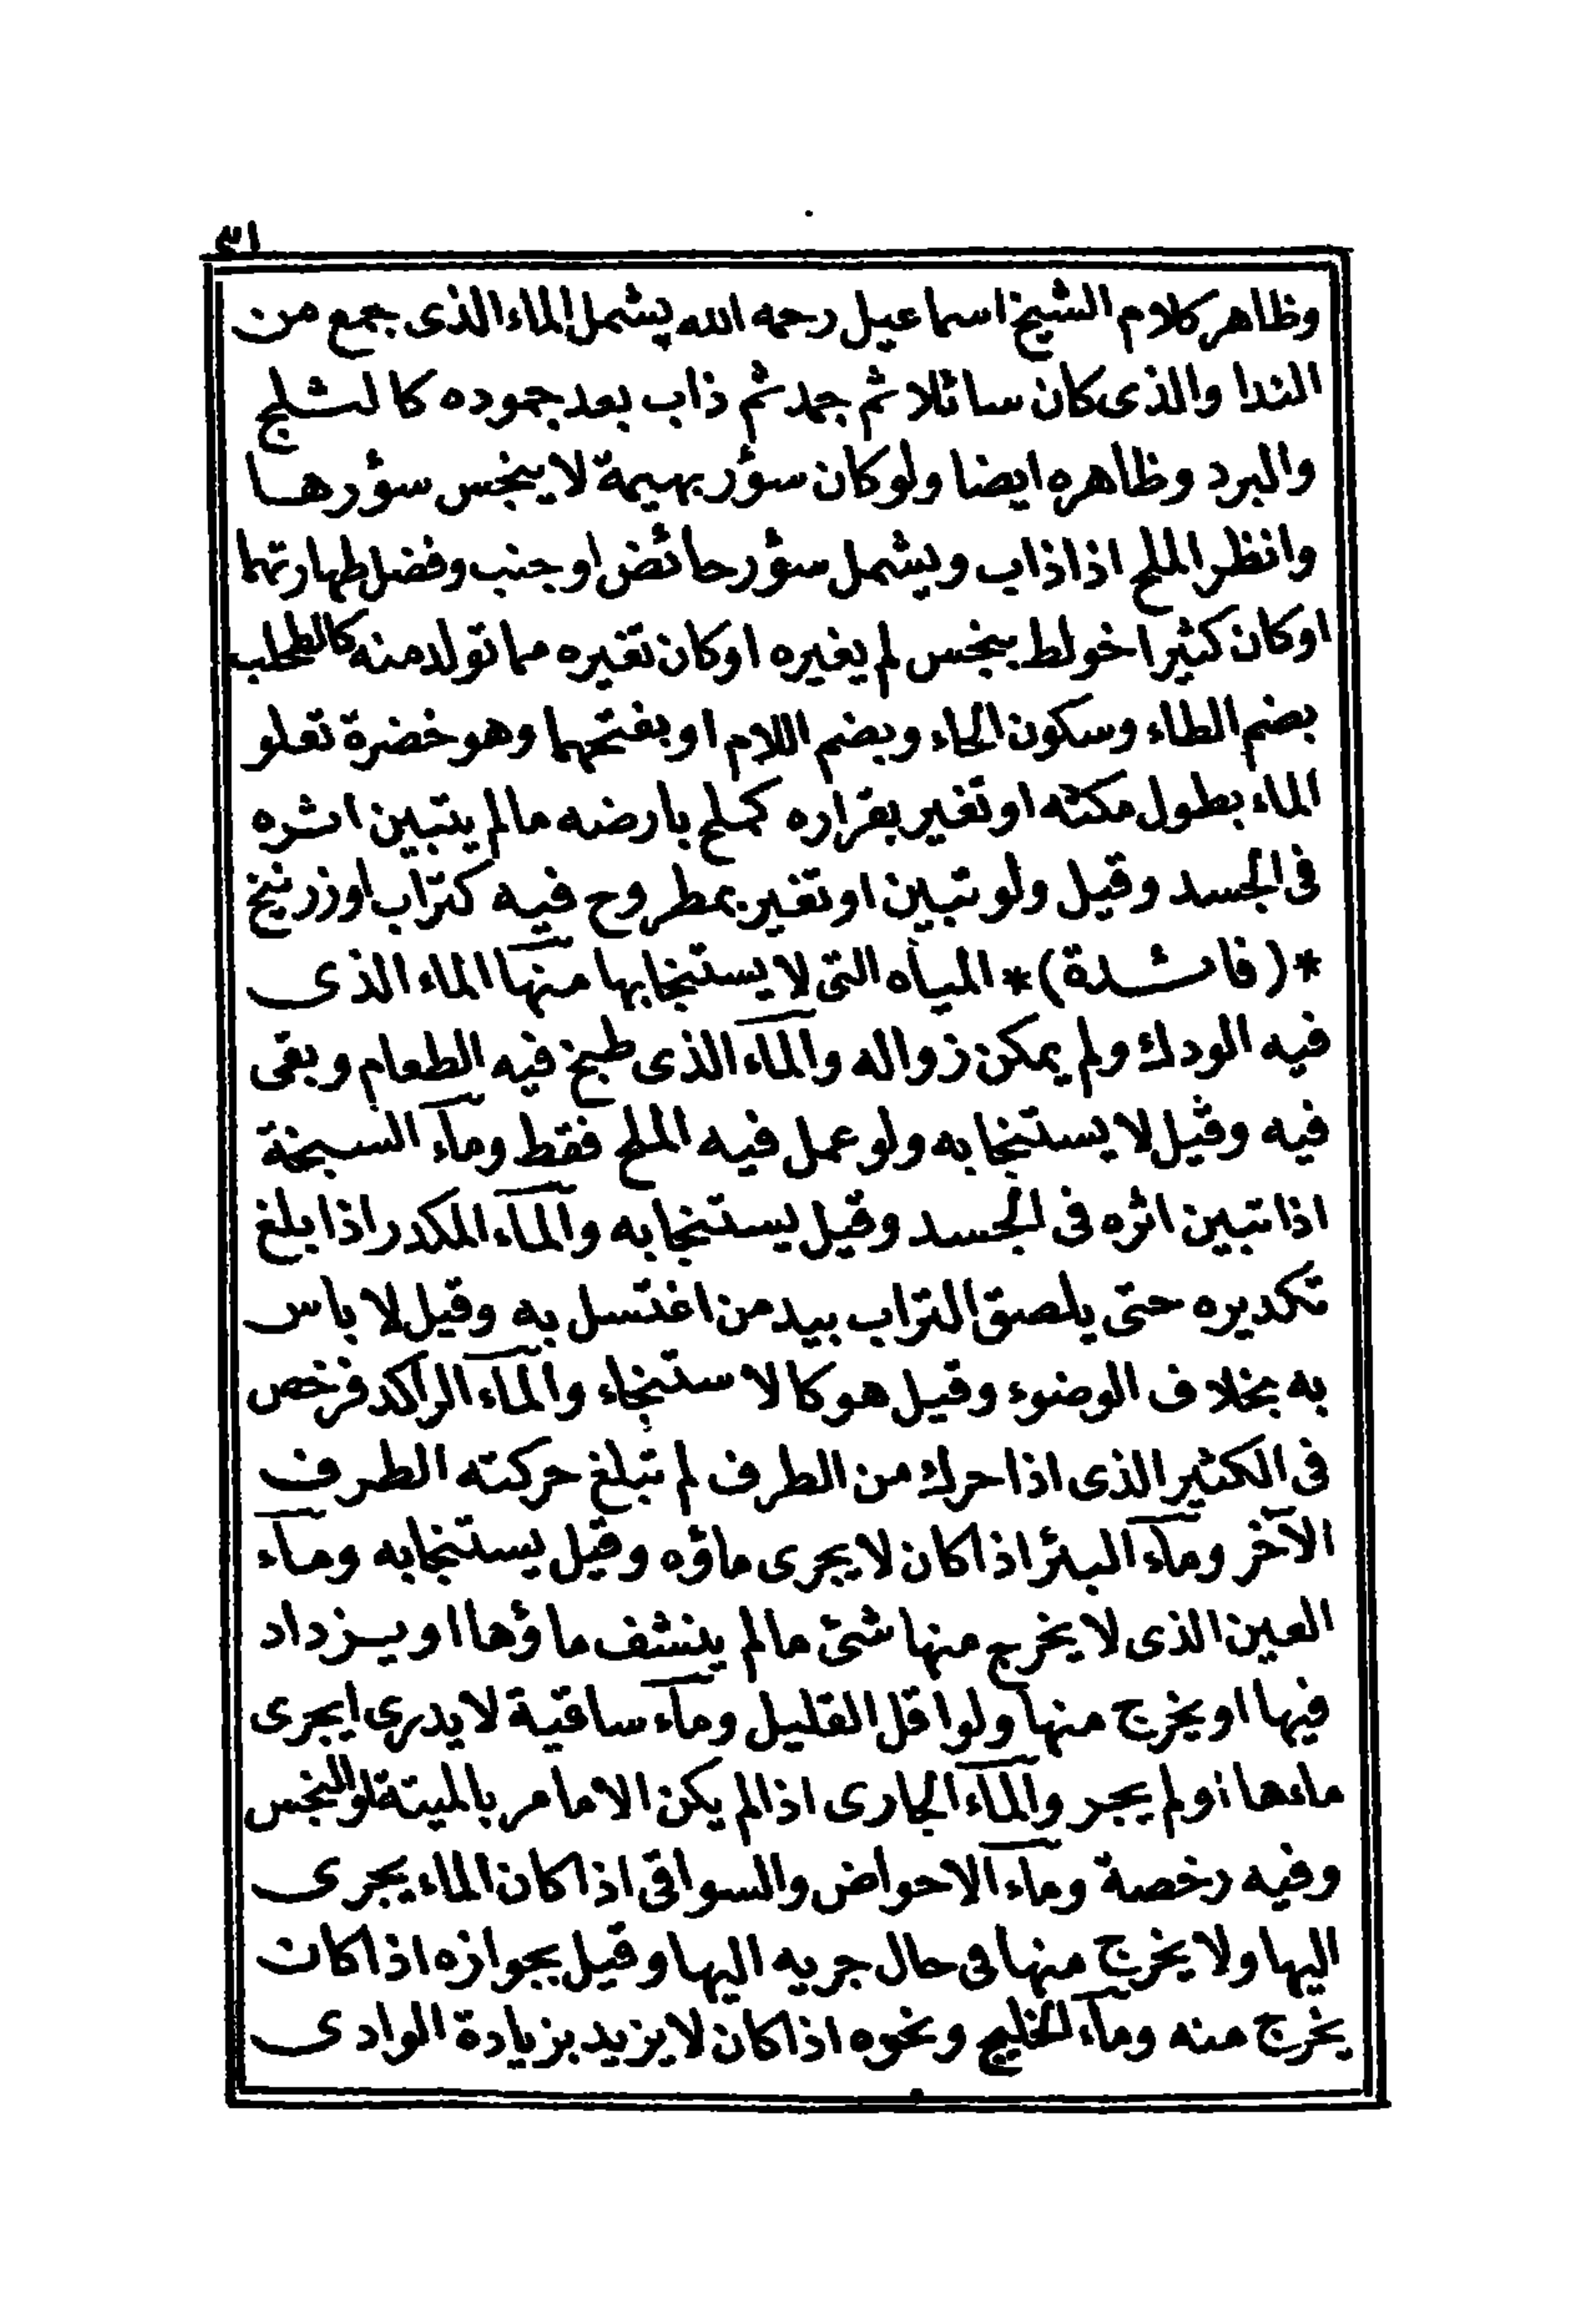 ٣١
وظاهر كلام الشيخ اسماعيل رحمه الله يشمل الماء الذى جمع من
الندا والذى كان سائلا ثم جمد ثم ذاب بعد جموده كالثلج
والبرد وظاهره ايضا ولو كان سؤر بهيمة لا ينجس سؤرها
وانظر الملح اذا ذاب ويشمل سؤر حائض او جنب وفضل طهارتهما
او كان كثيرا خولط بنجس لم يغيره او كان تغيره مما تولد منه كالطحلب
بضم الطاء وسكون الحاء وبضم اللام او بفتحهما وهو خضرة تعلو
الماء بطول مكثه او تغير بقراره كملح بارضه ما لم يتبين اثره
فى الجسد وقيل ولو تبين او تغير بمطروح فيه كتراب او زرنيخ
*(فائدة)* المياه التى لا يستنجا بها منها الماء الذى
فيه الودك ولم يمكن زواله والماء الذى طبخ فيه الطعام وبقى
فيه وقيل لا يستنجا به ولو عمل فيه الملح فقط وماء السبخة
اذا تبين اثره فى الجسد وقيل يستنجا به والماء المكدر اذا بلغ
تكديره حتى يلصق التراب بيد من اغتسل به وقيل لا باس
به بخلاف الوضوء وقيل هو كالاستنجاء والماء الراكد فرخص
فى الكثير الذى اذا حرك من الطرف لم تبلغ حركته الطرف
الآخر وماء البئر اذا كان لا يجرى ماؤه وقيل يستنجا به وماء
العين الذى لا يخرج منها شئ ما لم ينشف ماؤها او يزداد
فيها او يخرج منها ولو اقل القليل وماء ساقية لا يدرى ايجرى
ماءها او لم يجر والماء الجارى اذا لم يكن الا مامر بالميتة او النجس
وفيه رخصة وماء الاحواض والسواقى اذا كان الماء يجرى
اليها ولا يخرج منها فى حال جريه اليها وقيل بجوازه اذا كان
يخرج منه وماء الخليج ونحوه اذا كان لا يزيد بزيادة الوادى